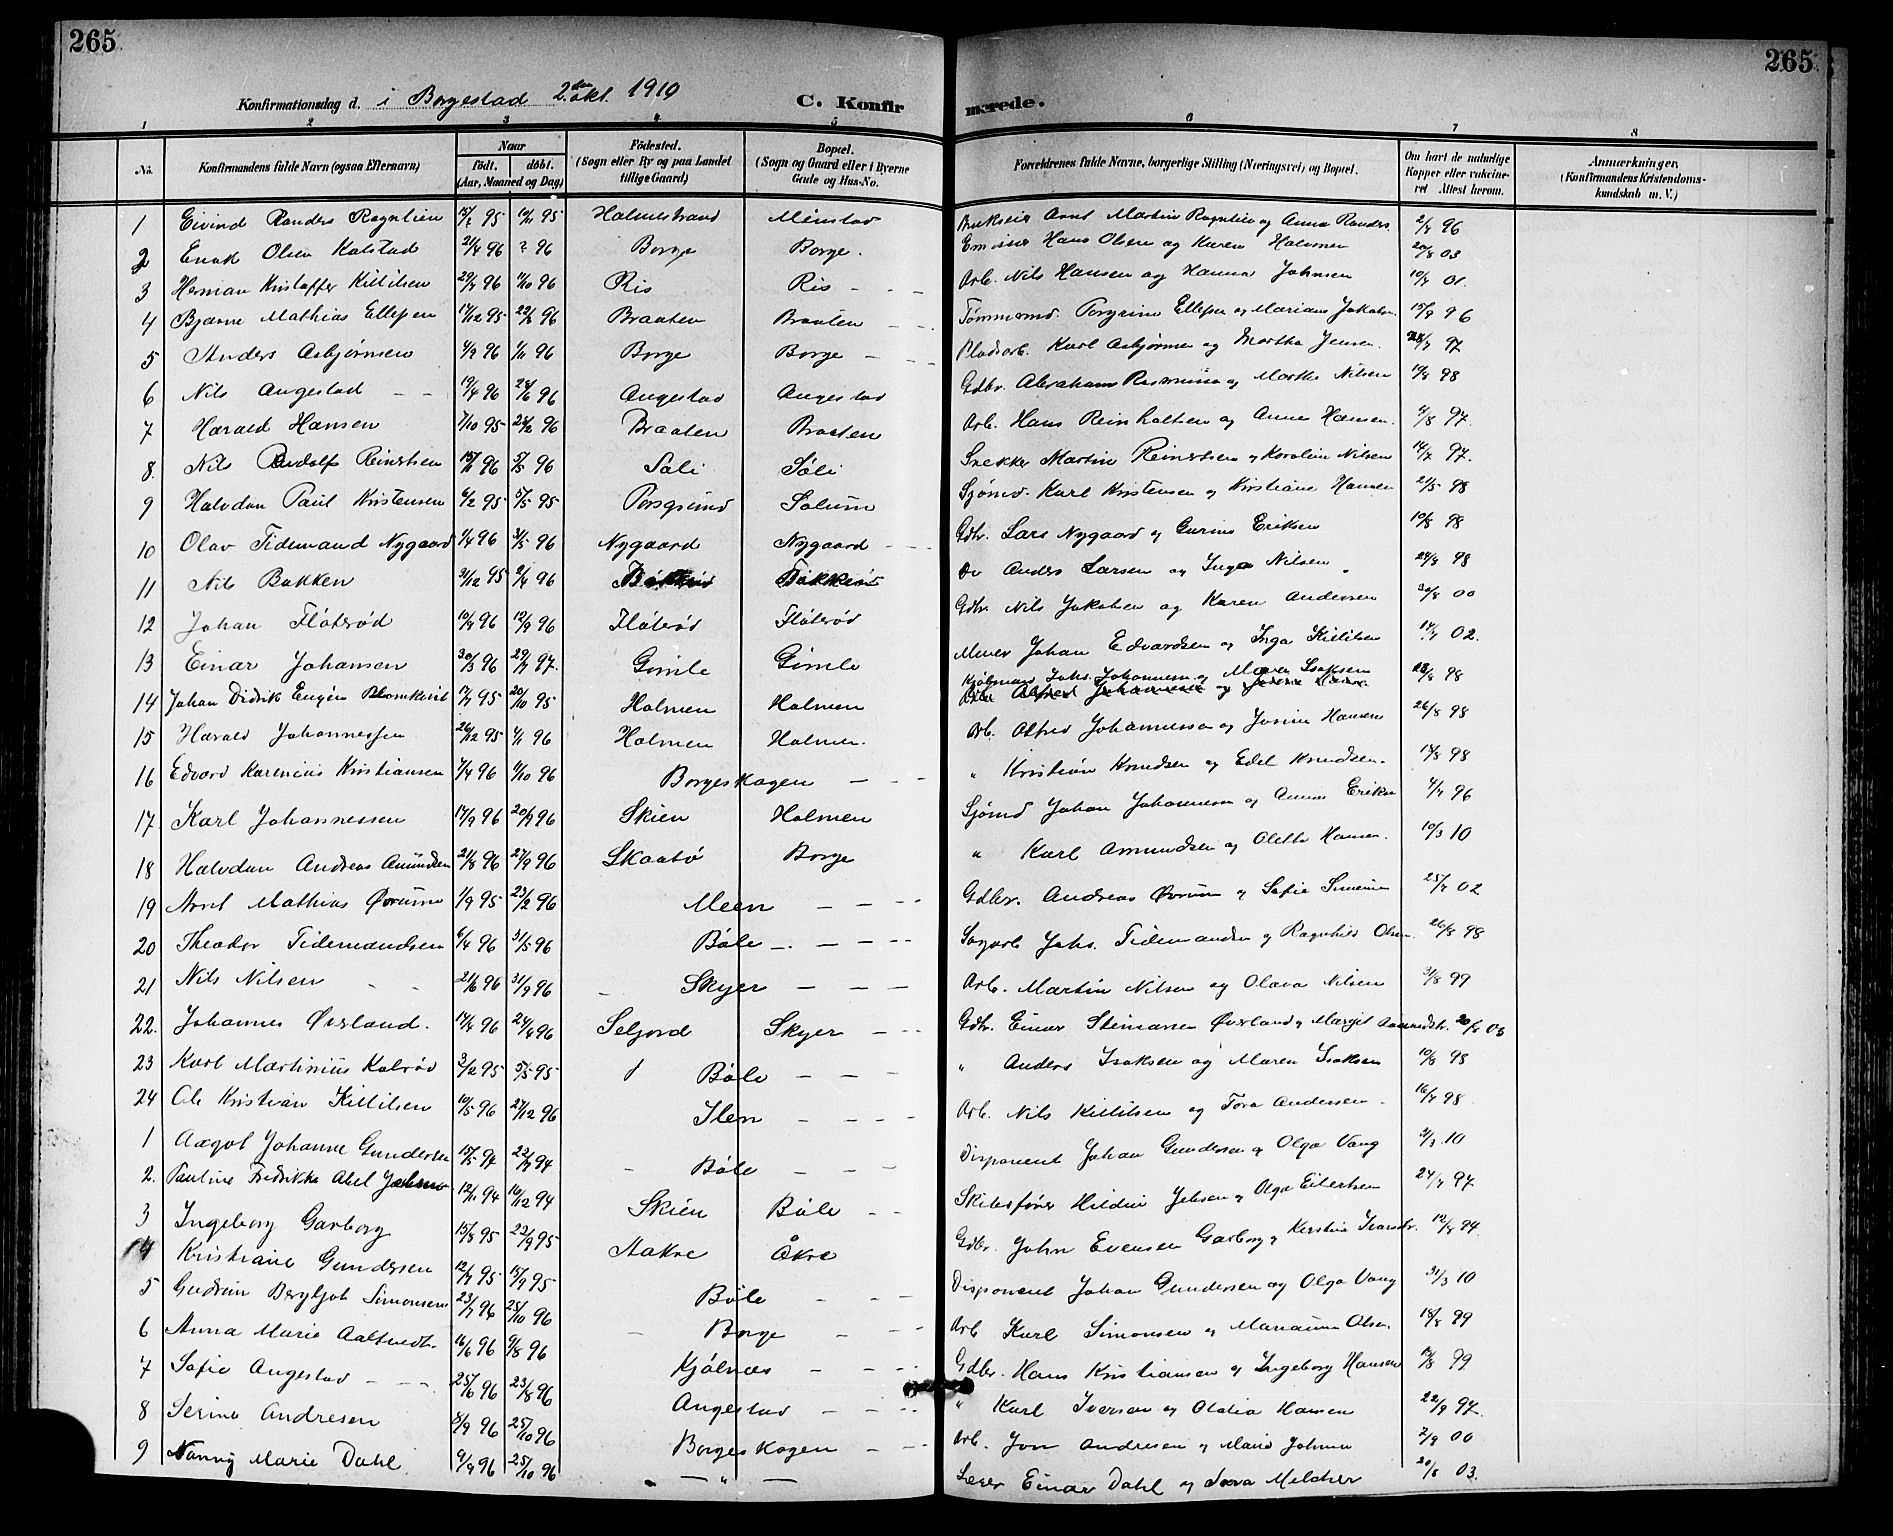 265
265
Konfirmationsdag d. i Borgestad 2den okt. 1910
C. Konfirmerede.
1 2 3 4 5 6 7 8
No. Konfirmandens fulde Navn (ogsaa Efternavn) Naar født. døbt. (Aar, Maaned og Dag) Fødested. (Sogn eller By og paa Landet tillige Gaard) Bopæl. (Sogn og Gaard eller i Byerne Gade og Hus-No. Forældrenes fulde Navne, borgerlige Stilling (Næringsvei) og Bopæl. Om havt de naturlige Kopper eller vakcineret Attest herom. Anmærkninger. (Konfirmandens Kristendomskundskab m. V.)
1 Eivind Randers Rogntien 95 95 Holmestrand Menstad Arnt Martin Rogntien og Anna Randers 96
2 Enok Olsen Kalstad 21/4 96 ? 96 Borge Borge. Emissær Hans Olsen og Karen Halvorsen 20/8 03
3 Herman Kristoffer Kittilsen 96 11/10 96 Ris Ris Arb. Nils Hansen og Hanna Johnsen 01
4 Bjarne Mathias Ellefsen 17/12 95 96 Braaten Braaten Tømmermd. Torgrim Ellefsen og Mariane Jakobsen 96
5 Anders Asbjørnsen 4/9 96 1/11 96 Borge Borge Pladsarb. Karl Asbjørnsen og Martha Jensen. 97
6 Nils Angestad 19/4 96 28/6 96 Angestad Angestad Gdbr. Abraham Rasmussen og Marthe Nilsen 98
7 Harald Hansen 7/10 95 24/2 96 Braaten Braaten Arb. Hans Reinholtsen og Anne Hansen. 4/8 97.
8. Nils Rudolf Reinertsen 96 96 Søli Søli Snekker Martin Reinertsen og Karoline Nilsen 97.
9 Halvdan Paul Kristensen 6/2 95 5/5 95 Porsgrund Solum Sjømd. Karl Kristensen og Kristiane Hansen 21/5 98
10 Olav Tidemand Nygaard 1/4 96 31/5 96 Nygaard Nygaard Gdbr. Lars Nygaard og Gurine Eriksen 10/8 98
11 Nils Bakken 31/12 95 2/4 96 Bakken Bakken Do Anders Larsen og Inga Nilsen 98
12 Johan Fløterød 96 19/9 96 Fløterød Fløterød Gdbr. Nils Jakobsen og Karen Andersen 30/8 00
13 Einar Johansen 30/3 96 97. Gimle Gimle Murer Johan Edvardsen og Inga Kittilsen 02.
14 Johan Didrik Eugén Blomkvist 95 20/10 95 Holmen Holmen Kjølmand Johs. Johannesen og Maren Isaksen 98
15 Harald Johannessen 26/12 95 96 Holmen Holmen. Arb. Alfred Johannessen og Josine Hansen 26/8 98
16 Edvard Karenius Kristiansen 7/4 96 11/10 96 Borgeskogen " Kristian Knudsen og Edel Knudsen. 98
17. Karl Johannessen 17/9 96 96 Skien Holmen Sjømd Johan Johannesen og Anna Eriksen 96
18 Halvdan Andreas Amundsen 21/8 96 27/9 96 Skaatø Borge " Karl Amundsen og Olette Hansen. 10/3 10
19 Arnt Mathias Ørum 1/9 95 23/2 96 Meen Gdbr. Andreas Ørum og Sofie 02
20 Theodor Tidemandsen 6/4 96 31/5 96 Bøle Sagarb Johs. Tidemandsen og Ragnhild Olsen. 26/8 98
21 Nils Nilsen 21/6 96 31/9 96 Skyer Arb. Martin Nilsen og Olava Nilsen 31/8 99
22. Johannes Øverland. 14/4 96 24/4 96 Seljord Skyer Gdbr. Einar Steinarsen Øverland og Margit Aanundsdtr. 03
23 Karl Martinius Kalrød 3/2 95 5/5 95 Bøle " Anders Isaksen og Maren Isaksen 10/8 98
24 Ole Kristian Kittilsen 10/5 96 27/12 96 Ilen Arb. Nils Kittilsen og Tora Andersen. 98.
1 Aagot Johanne Gundersen 94 94 Bøle Disponent Johan Gundersen og Olga Vang 31/3 10
2. Pauline Fredrikke Abel 12/11 94 16/12 94 Skien Bøle Skibsfører Jebsen og Olga Eilertsen 97
3 Ingeborg Garborg 15/8 95 22/9 95 Aakre Åkre Gdbr. John Evensen Garborg og Kirstine 94.
4 Kristiane Gundersen 95 15/9 95 Bøle Disponent Johan Gundersen og Olga Vang 31/3 10
5 Gudrun Bergljot Simonsen 96 25/10 96 Borge Arb Karl Simonsen og Olsen. 18/8 99
6 Anna Marie Aaltvedt. 16/6 96 9/8 96 Kjølnæs Gdbr. Hans Kristiansen og Ingeborg Hansen 99
7 Sofie Angestad 25/6 96 23/8 96 Angestad " Karl Iversen og Olalia Hansen 22/9 97.
8 Serine Andresen 8/9 96 25/10 96 Borgeskogen Arb. Jon Andresen og Marie Johnsen 2/9 00
9 Nanny Marie Dahl. 9/9 96 25/10 96 — " — Einar Dahl og Sara Melcher 20/8 03.